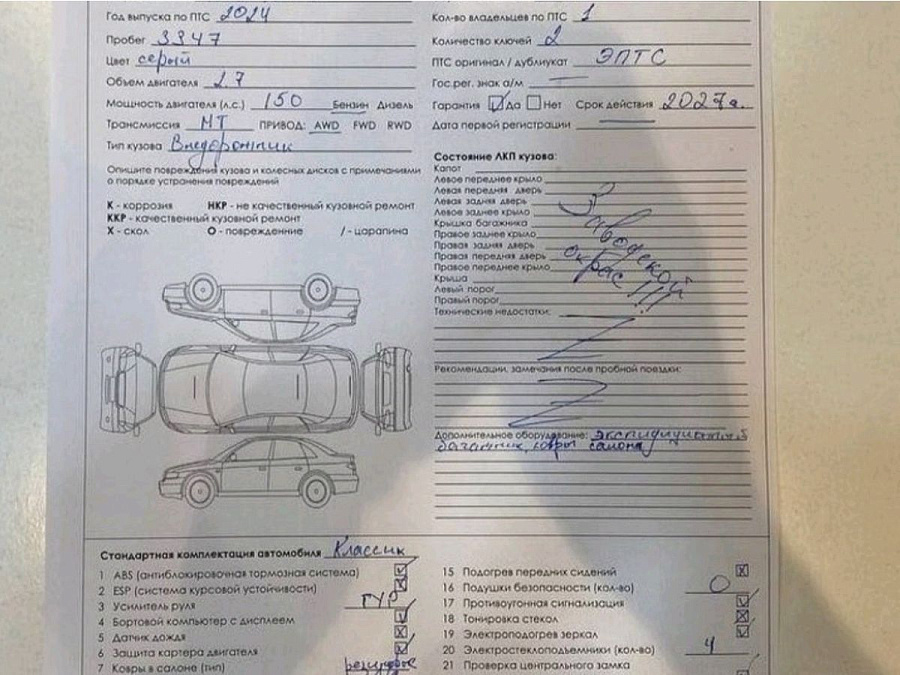 Год выпуска по ПТС 2024
Пробег 3347
Цвет серый
Объем двигателя 2.7
Мощность двигателя (л.с.) 150 Бензин Дизель
Трансмиссия МТ ПРИВОД: AWD FWD RWD
Тип кузова Внедорожник
Опишите повреждения кузова и колесных дисков с примечаниями
о порядке устранения повреждений
К - коррозия НКР - не качественный кузовной ремонт
ККР - качественный кузовной ремонт
Х - скол О - повреждение / - царапина
Кол-во владельцев по ПТС 1
Количество ключей 2
ПТС оригинал / дубликат ЭПТС
Гос.рег. знак а/м
Гарантия Да Нет Срок действия 2027г.
Дата первой регистрации
Состояние ЛКП кузова:
Капот
Левое переднее крыло
Левая передняя дверь
Левая задняя дверь
Левое заднее крыло
Крышка багажника
Правое заднее крыло
Правая задняя дверь
Правая передняя дверь
Правое переднее крыло
Крыша
Левый порог
Правый порог
Заводской
окрас!!!
Технические недостатки:
Рекомендации, замечания после пробной поездки:
Дополнительное оборудование: экспедиционный
багажник, ковры салона
Стандартная комплектация автомобиля Классик
1 ABS (антиблокировочная тормозная система)
2 ESP (система курсовой устойчивости)
3 Усилитель руля ГУР
4 Бортовой компьютер с дисплеем
5 Датчик дождя
6 Защита картера двигателя
7 Ковры в салоне (тип) резиновые
15 Подогрев передних сидений
16 Подушки безопасности (кол-во) 0
17 Противоугонная сигнализация
18 Тонировка стекол
19 Электроподогрев зеркал
20 Электростеклоподъемники (кол-во) 4
21 Проверка центрального замка